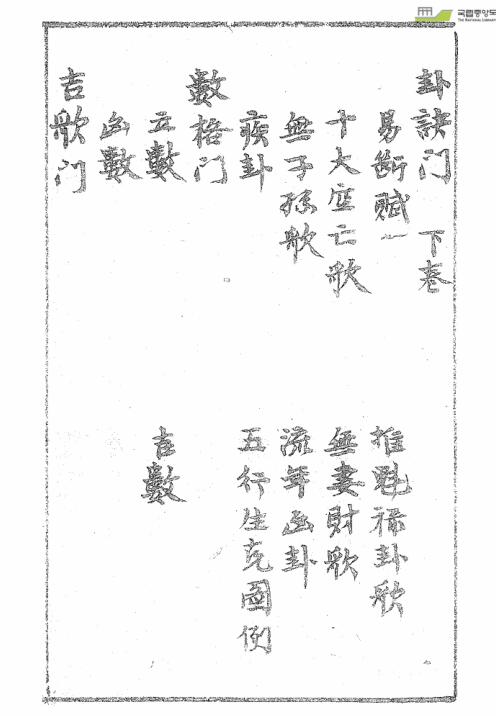 卦訣门 下巻
易斷赋一 推魁祿卦歌
十大空亡歌 無妻財歌
無子孫歌 流年凶卦
疾卦 五行生克圖例
數格门
立數 吉數
凶數
吉歌门
국립중앙도
THE NATIONAL LIBRARY